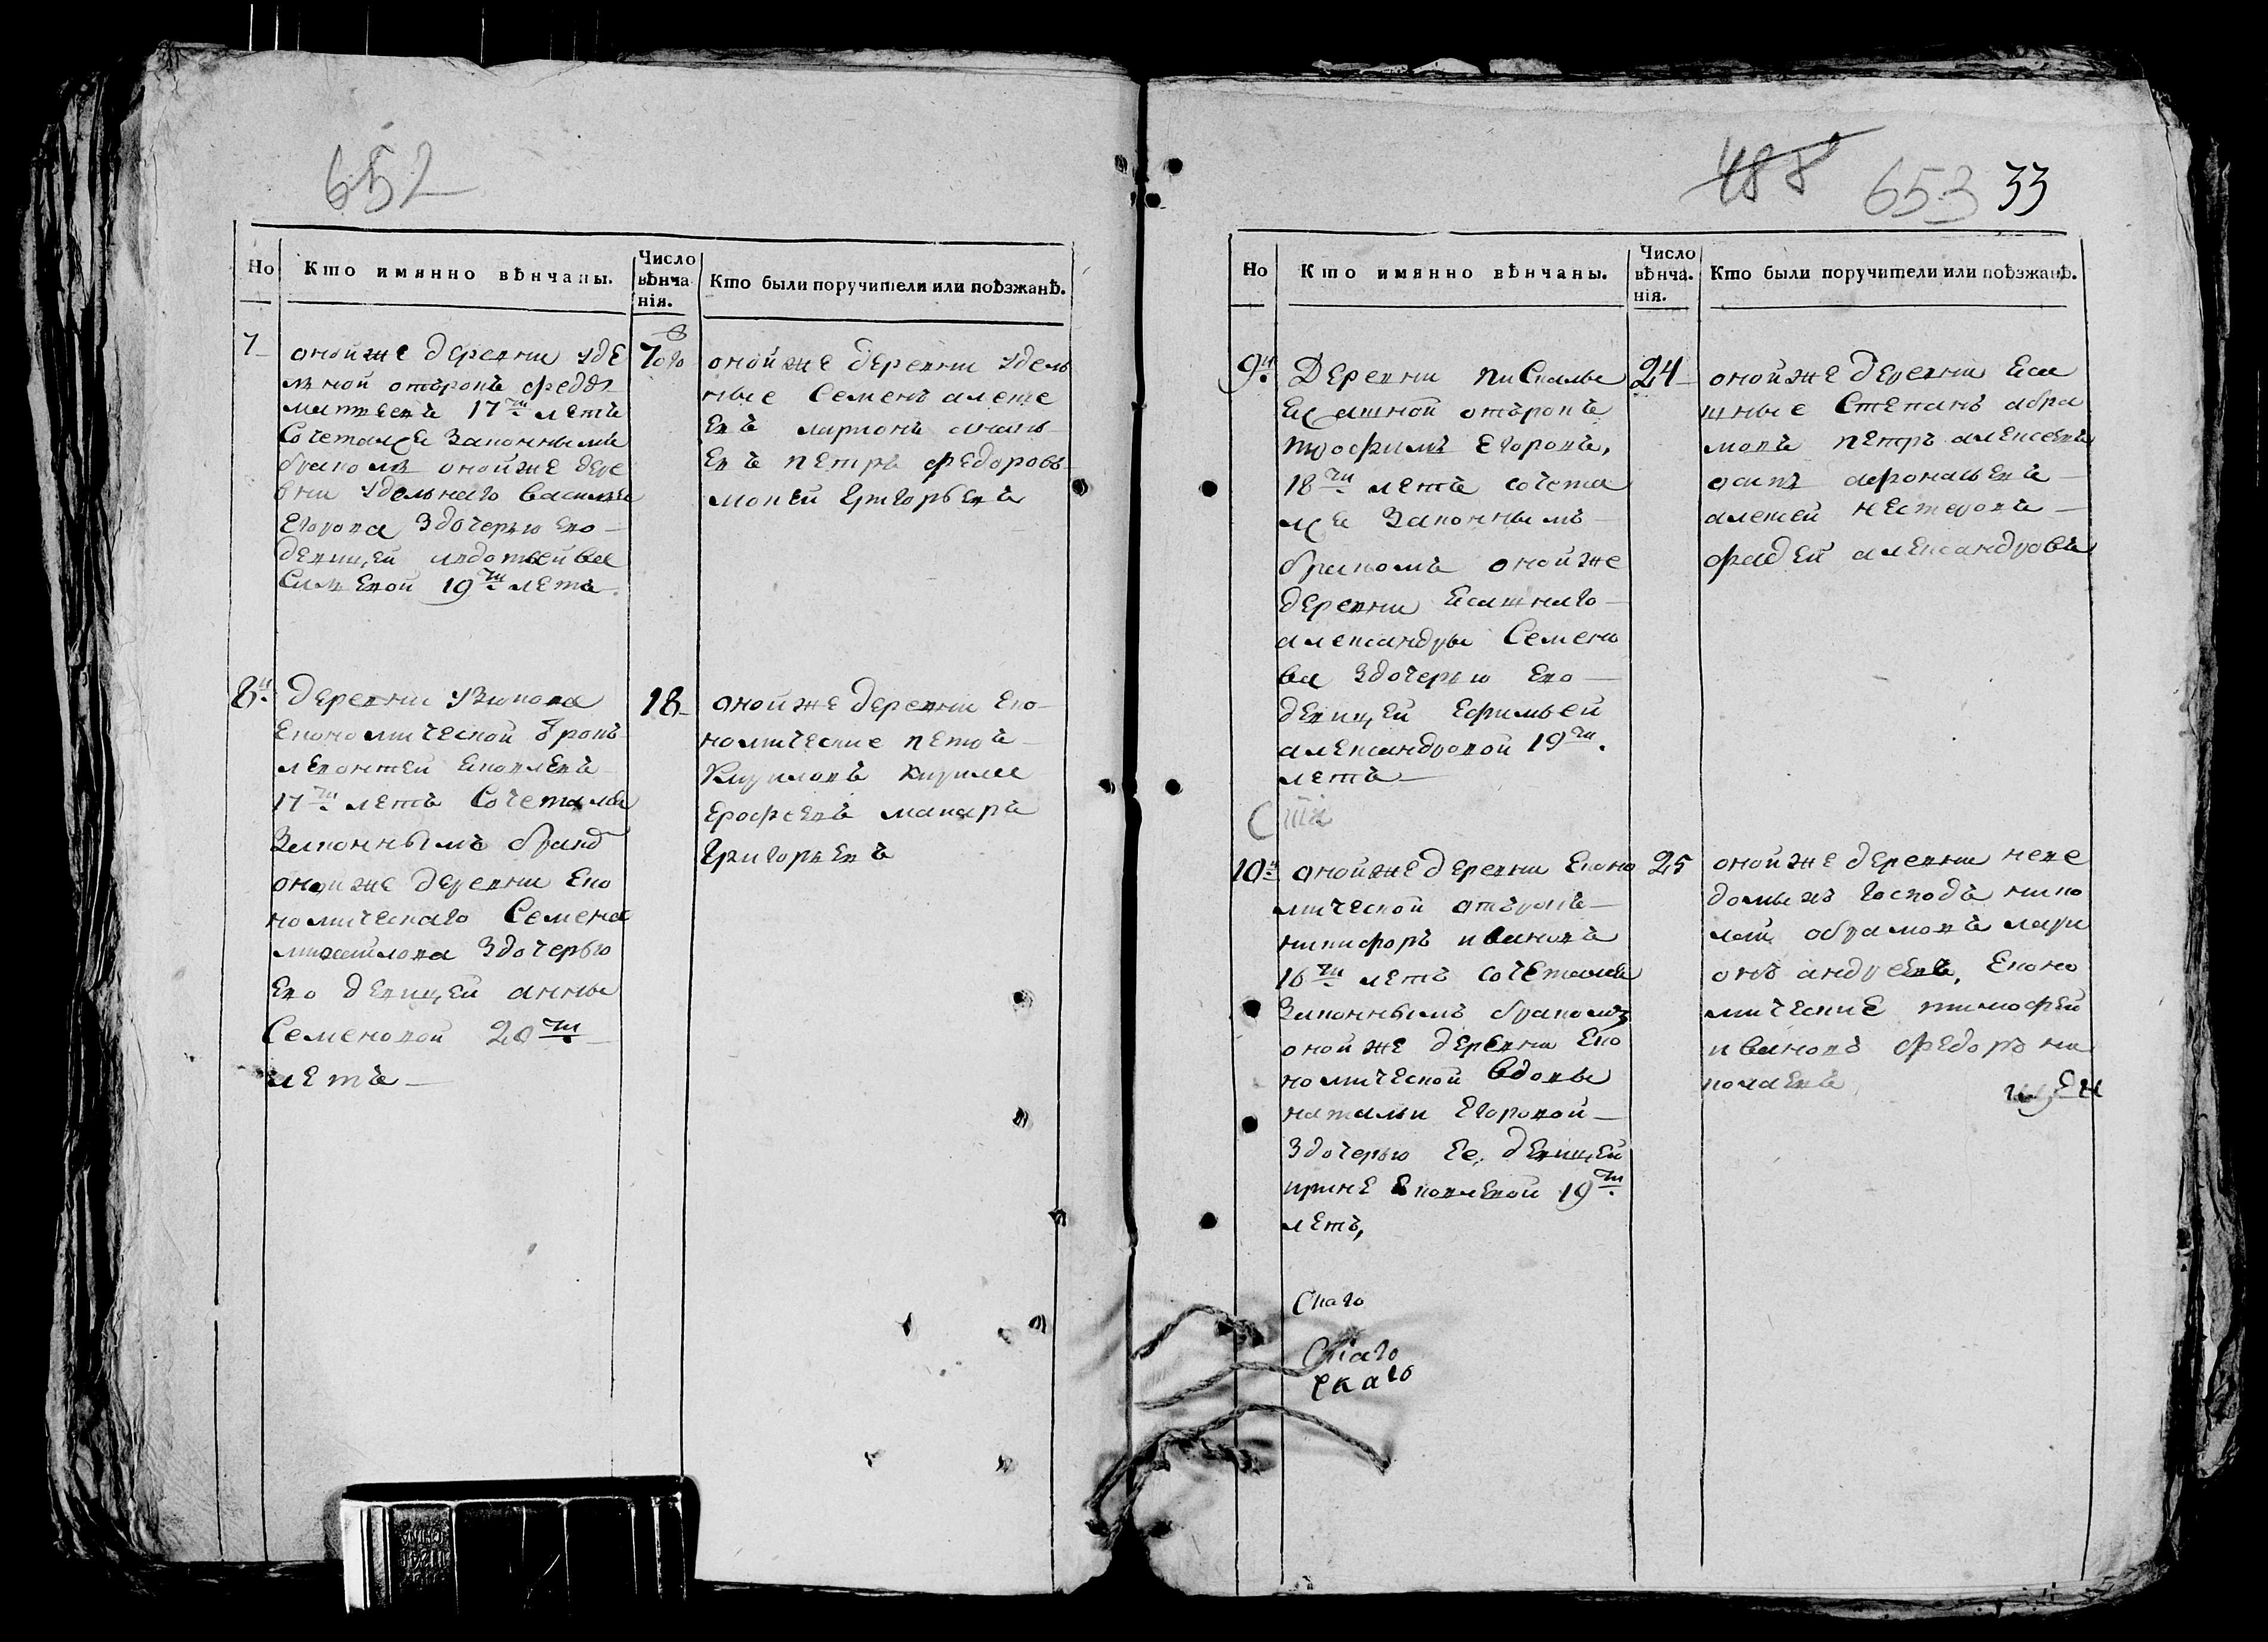 652
Но
Кто имянно вѣнчаны.
Число вѣнча нія.
Кто были поручители или поѣзжанѣ.
7
оной же деревни уде
льной отърокъ
матвеевъ 17ти летъ
сочетался законнымъ
бракомъ оной же дере
вни удельнаго василья
Егорова здочерью ево
девицей авдотьей ва
сильевой 19ти летъ
7 ого
оной же деревни удель
ные Семенъ алексе
евъ ларионъ
евъ петръ федоровъ
мокей григорьевъ
8й
деревни узюкова
Економической
леонтей яковлевъ
17ти летъ сочетался
законнымъ
оной же деревни Еко
номическаго Семена
михайлова здочерью
Ево девицей анны
Семеновой 20ти
летъ
18
оной же деревни Еко
номические петръ
Кириловъ кирила
Ерофеевъ макаръ
григорьевъ
488 653 33
Но
Кто имянно вѣнчаны.
Число вѣнча. нія.
Кто были поручители или поѣзжанѣ.
9й
Деревни пискалы
ясашной отърокъ
трофимъ Егоровъ,
18ти летъ сочета
лся законнымъ
бракомъ оной же
деревни ясашнаго
александры Семено
ва здочерью Ево
девицей Ефимьей
александровой 19ти
летъ
24
оной же деревни яса
шные Степанъ абра
мовъ петръ алексеевъ
осипъ афонасьевъ
алексей нестеровъ
фадей александровъ
10й
оной же деревни Еконо
мической отърокъ
никифоръ ивановъ
16ти летъ сочетался
законнымъ бракомъ
оной же деревни Еко
номической вдовы
натальи Егоровой
здочерью Ее девицей
ирине яковлевой 19ти
летъ,
25
оной же деревни неве
домыхъ господъ нико
лай абрамовъ лари
онъ андреевъ, Еконо
мические тимофей
ивановъ федоръ ни
колаевъ
скаго
скаго